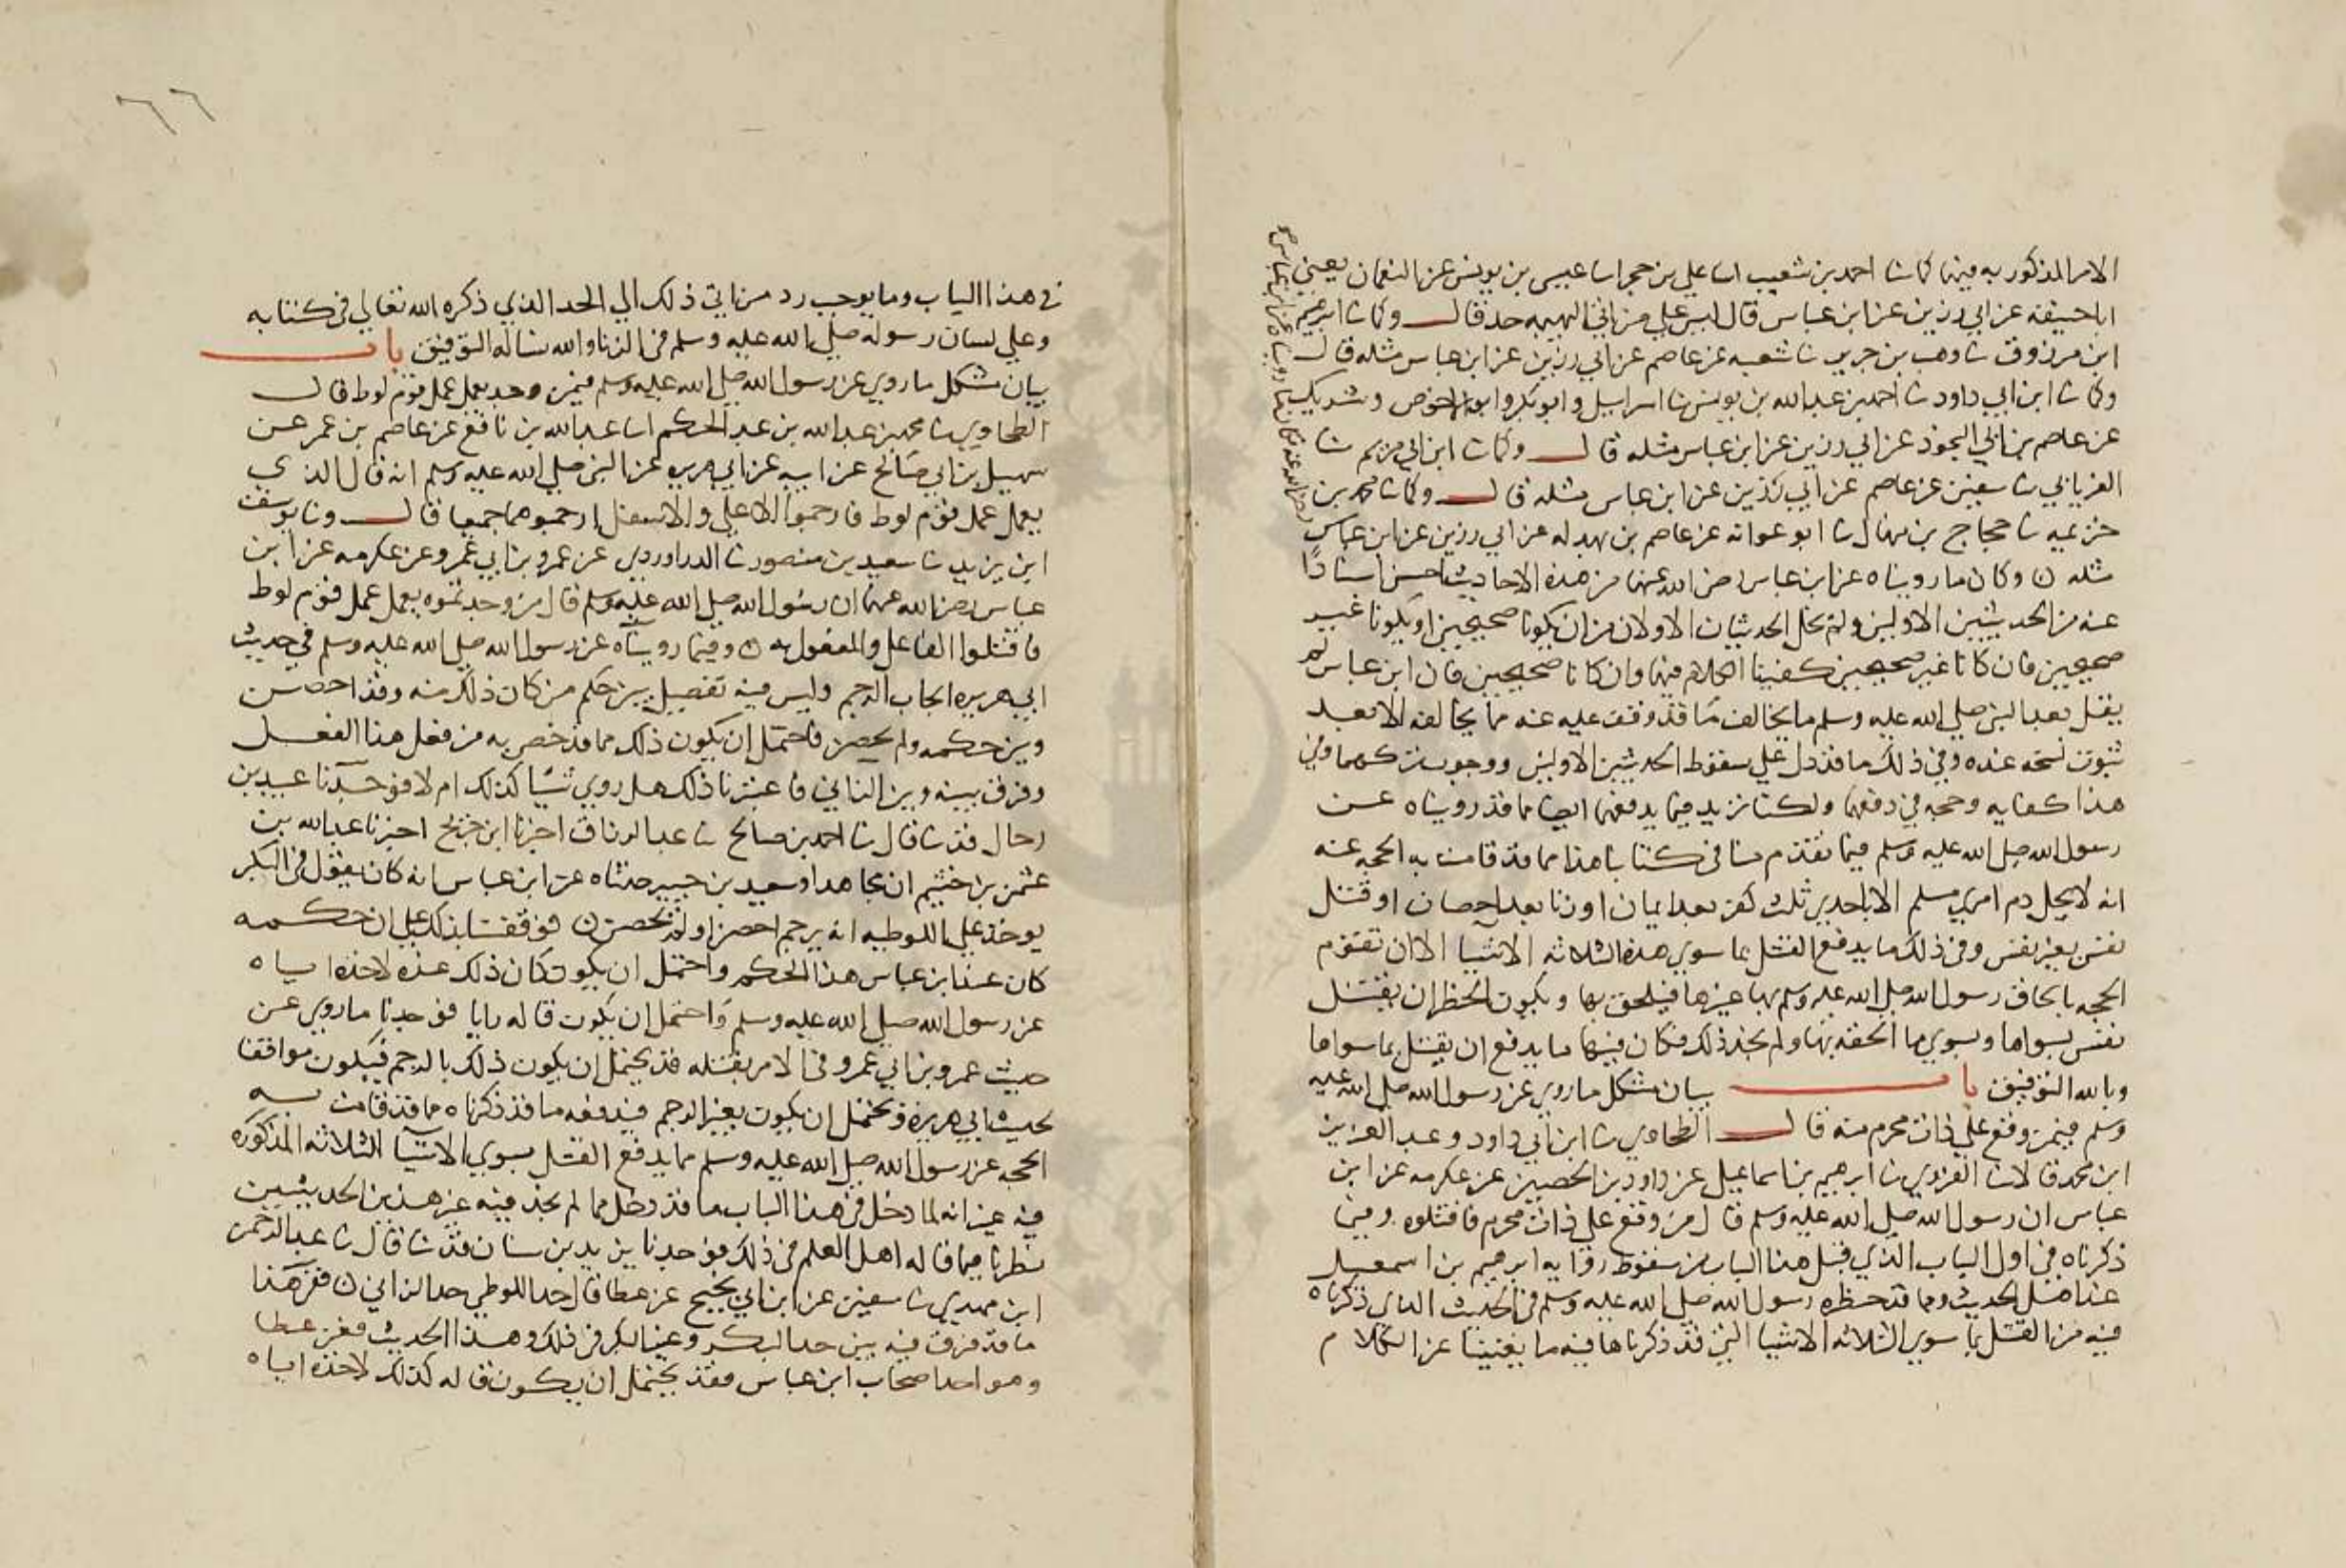 الامر المذكور به فيهما كما ثنا احمد بن شعيب انا علي بن حجر انا عيسى بن يونس عن النعمان يعني
ابا حنيفة عن ابي رزين عن ابن عباس قال ليس علي من اتي البهيمه حد قال وكما ثنا ابرهيم
ابن مرزوق ثنا وهب بن جرير ثنا شعبه عن عاصم عن ابي رزين عن ابن عباس مثله قال
وكما ثنا ابن ابي داود ثنا احمد بن عبد الله بن يونس ثنا اسرايل وابو بكر وابو الاحوص وشريك
عن عاصم بن ابي النجود عن ابي رزين عن ابن عباس مثله قال وكما ثنا ابن ابي مريم ثنا
الفريابي ثنا سفين عن عاصم عن ابي رزين عن ابن عباس مثله قال وكما ثنا محمد بن
خزيمه ثنا حجاج بن منهال ثنا ابو عوانه عن عاصم بن بهدله عن ابي رزين عن ابن عباس
مثله وكان ما رويناه عن ابن عباس رضي الله عنهما من هذه الاحاديث احسن اسنادًا
عنه من الحديثين الاولين ولم يخل الحديثان الاولان من ان يكونا صحيحين او يكونا غير
صحيحين فان كانا غير صحيحين كفينا الكلام فيهما وان كانا صحيحين فان ابن عباس لم
يقل بعد النبي صلي الله عليه وسلم ما يخالف ما قد وقف عليه عنه مما يخالفه الا بعد
ثبوت نسخه عنده وفي ذلك ما قد دل علي سقوط الحديثين الاولين ووجوب تركهما وفي
هذا كفايه وحجه في دفعهما ولكنا نزيد فيما يدفعهما ايضا مما قد رويناه عن
رسول الله صلي الله عليه وسلم فيما تقدم منا في كتابنا هذا مما قد قامت به الحجه عنه
انه لا يحل دم امري مسلم الا باحدي ثلث كفر بعد ايمان او زنا بعد احصان او قتل
نفس بغير نفس وفي ذلك ما يدفع القتل بما سوي هذه الثلاثه الاشيا الا ان تقوم
الحجه بالحاق رسول الله صلي الله عليه وسلم بها غيرها فيلحق بها ويكون الحظر ان يقتل
نفس بسواها وبسوي ما الحقه بها ولم نجد ذلك فكان فيها ما يدفع ان يقتل بما سواها
وبالله التوفيق باب بيان مشكل ما روي عن رسول الله صلي الله عليه
وسلم فيمن وقع علي ذات محرم منه قال الطحاوي ثنا ابن ابي داود وعبد العزيز
ابن محمد قالا ثنا الفروي ثنا ابرهيم بن اسماعيل عن داود بن الحصين عن عكرمه عن ابن
عباس ان رسول الله صلي الله عليه وسلم قال من وقع علي ذات محرم فاقتلوه وفيما
ذكرناه في اول الباب الذي قبل هذا الباب من سقوط روايه ابرهيم بن اسمعيل
عند اهل الحديث ومما قد حظره رسول الله صلي الله عليه وسلم في الحديث الذي ذكرناه
فيه من القتل بما سوي الثلاثه الاشيا التي قد ذكرناها فيه ما يغنينا عن الكلام
في هذا الباب وما يوجب رد من اتي ذلك الي الحد الذي ذكره الله تعالي في كتابه
وعلي لسان رسوله صلي الله عليه وسلم في الزنا والله نساله التوفيق باب
بيان مشكل ما روي عن رسول الله صلي الله عليه وسلم فيمن وجد يعمل عمل قوم لوط قال
الطحاوي ثنا محمد بن عبد الله بن عبد الحكم انا عبد الله بن نافع عن عاصم بن عمر عن
سهيل بن ابي صالح عن ابيه عن ابي هريره عن النبي صلي الله عليه وسلم انه قال الذي
يعمل عمل قوم لوط فارجموا الاعلي والاسفل ارجموهما جميعا قال وثنا يوسف
ابن يزيد ثنا سعيد بن منصور ثنا الدراوردي عن عمرو بن ابي عمرو عن عكرمه عن ابن
عباس رضي الله عنهما ان رسول الله صلي الله عليه وسلم قال من وجدتموه يعمل عمل قوم لوط
فاقتلوا الفاعل والمفعول به وفيما رويناه عن رسول الله صلي الله عليه وسلم في حديث
ابي هريره ايجاب الرجم وليس فيه تفصيل بين حكم من كان ذلك منه وقد احصن
وبين حكمه ولم يحصن فاحتمل ان يكون ذلك مما قد خص به من فعل هذا الفعل
وفرق بينه وبين الزاني فاعتبرنا ذلك هل روي شيا كذلك ام لا فوجدنا عبيد بن
رحال قد ثنا قال ثنا احمد بن صالح ثنا عبد الرزاق اخبرنا ابن جريج اخبرنا عبد الله بن
عثمن بن خثيم ان مجاهدا وسعيد بن جبير حدثاه عن ابن عباس انه كان يقول في البكر
يوخذ علي اللوطيه انه يرجم احصن او لم يحصن فوقفنا بذلك علي ان حكمه
كان عند ابن عباس هذا الحكم واحتمل ان يكون كان ذلك عنده لاخذه اياه
عن رسول الله صلي الله عليه وسلم واحتمل ان يكون قاله رايا فوجدنا ما روي عن
حديث عمرو بن ابي عمرو في الامر بقتله قد يحتمل ان يكون ذلك بالرجم فيكون موافقا
لحديث ابي هريرة ويحتمل ان يكون بغير الرجم فيدفعه ما قد ذكرناه مما قد قامت به
الحجه عن رسول الله صلي الله عليه وسلم مما يدفع القتل بسوي الاشيا الثلاثه المذكوره
فيه غير انه لما دخل في هذا الباب ما قد دخل مما لم نجد فيه غير هذين الحديثين
نظرنا فيما قاله اهل العلم في ذلك فوجدنا يزيد بن سنان قد ثنا قال ثنا عبد الرحمن
ابن مهدي ثنا سفين عن ابن ابي نجيح عن عطا قال حد اللوطي حد الزاني ففي هذا
ما قد فرق فيه بين حد البكر وغير البكر في ذلك وهذا الحديث فعن عطا
وهو احد اصحاب ابن عباس فقد يحتمل ان يكون قاله كذلك لاخذه اياه
٦٦